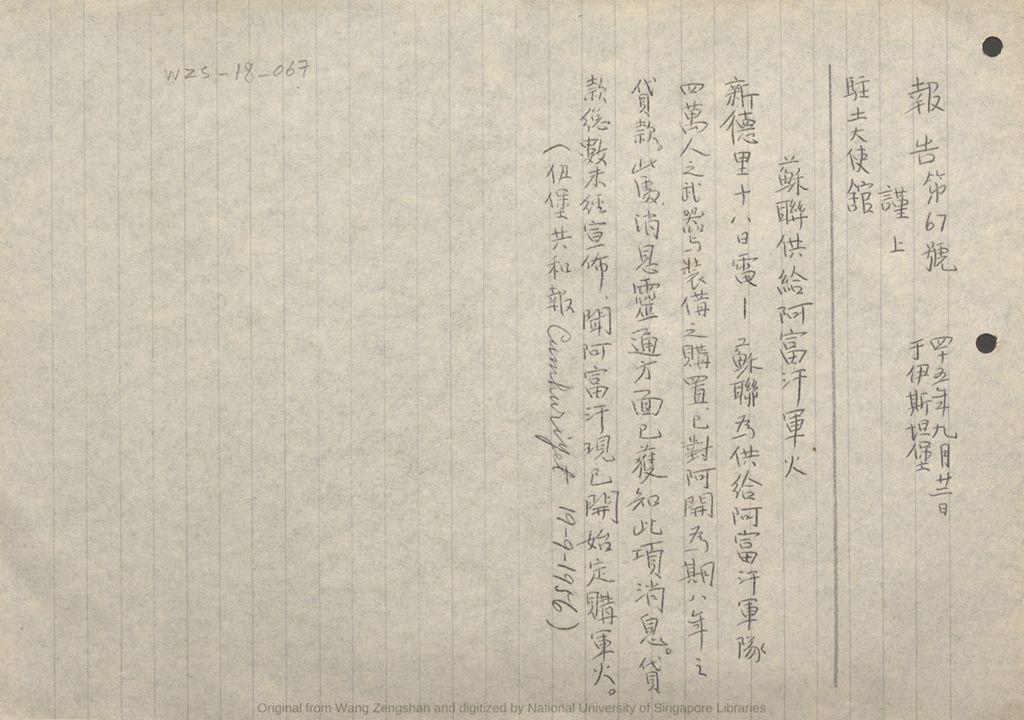 報告第67號
四十五年九月廿二日
于伊斯坦堡
謹上
駐土大使舘
蘇聯供給阿富汗軍火
新德里十八日電－蘇聯為供給阿富汗軍隊
四萬人之武器与裝備之購置、已對阿開為期八年之
貸款。此處消息靈通方面已獲知此項消息。貸
款總數未經宣佈、聞阿富汗現已開始定購軍火。
（伊堡共和報 Cumhuriyet 19-9-1956）
WZS-18-067
Original from Wang Zengshan and digitized by National University of Singapore Libraries